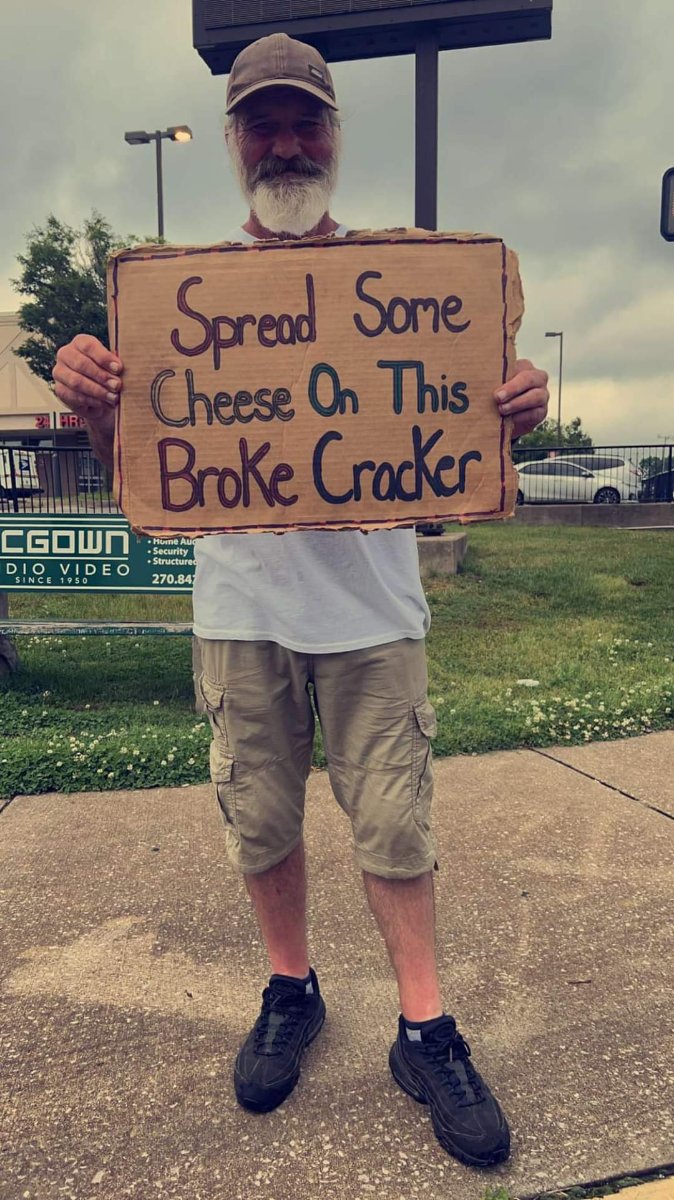 Spread Some
Cheese On This
Broke Cracker
24 HR
CGOWN
DIO VIDEO
SINCE 1950
• Security
• Structure
270.84